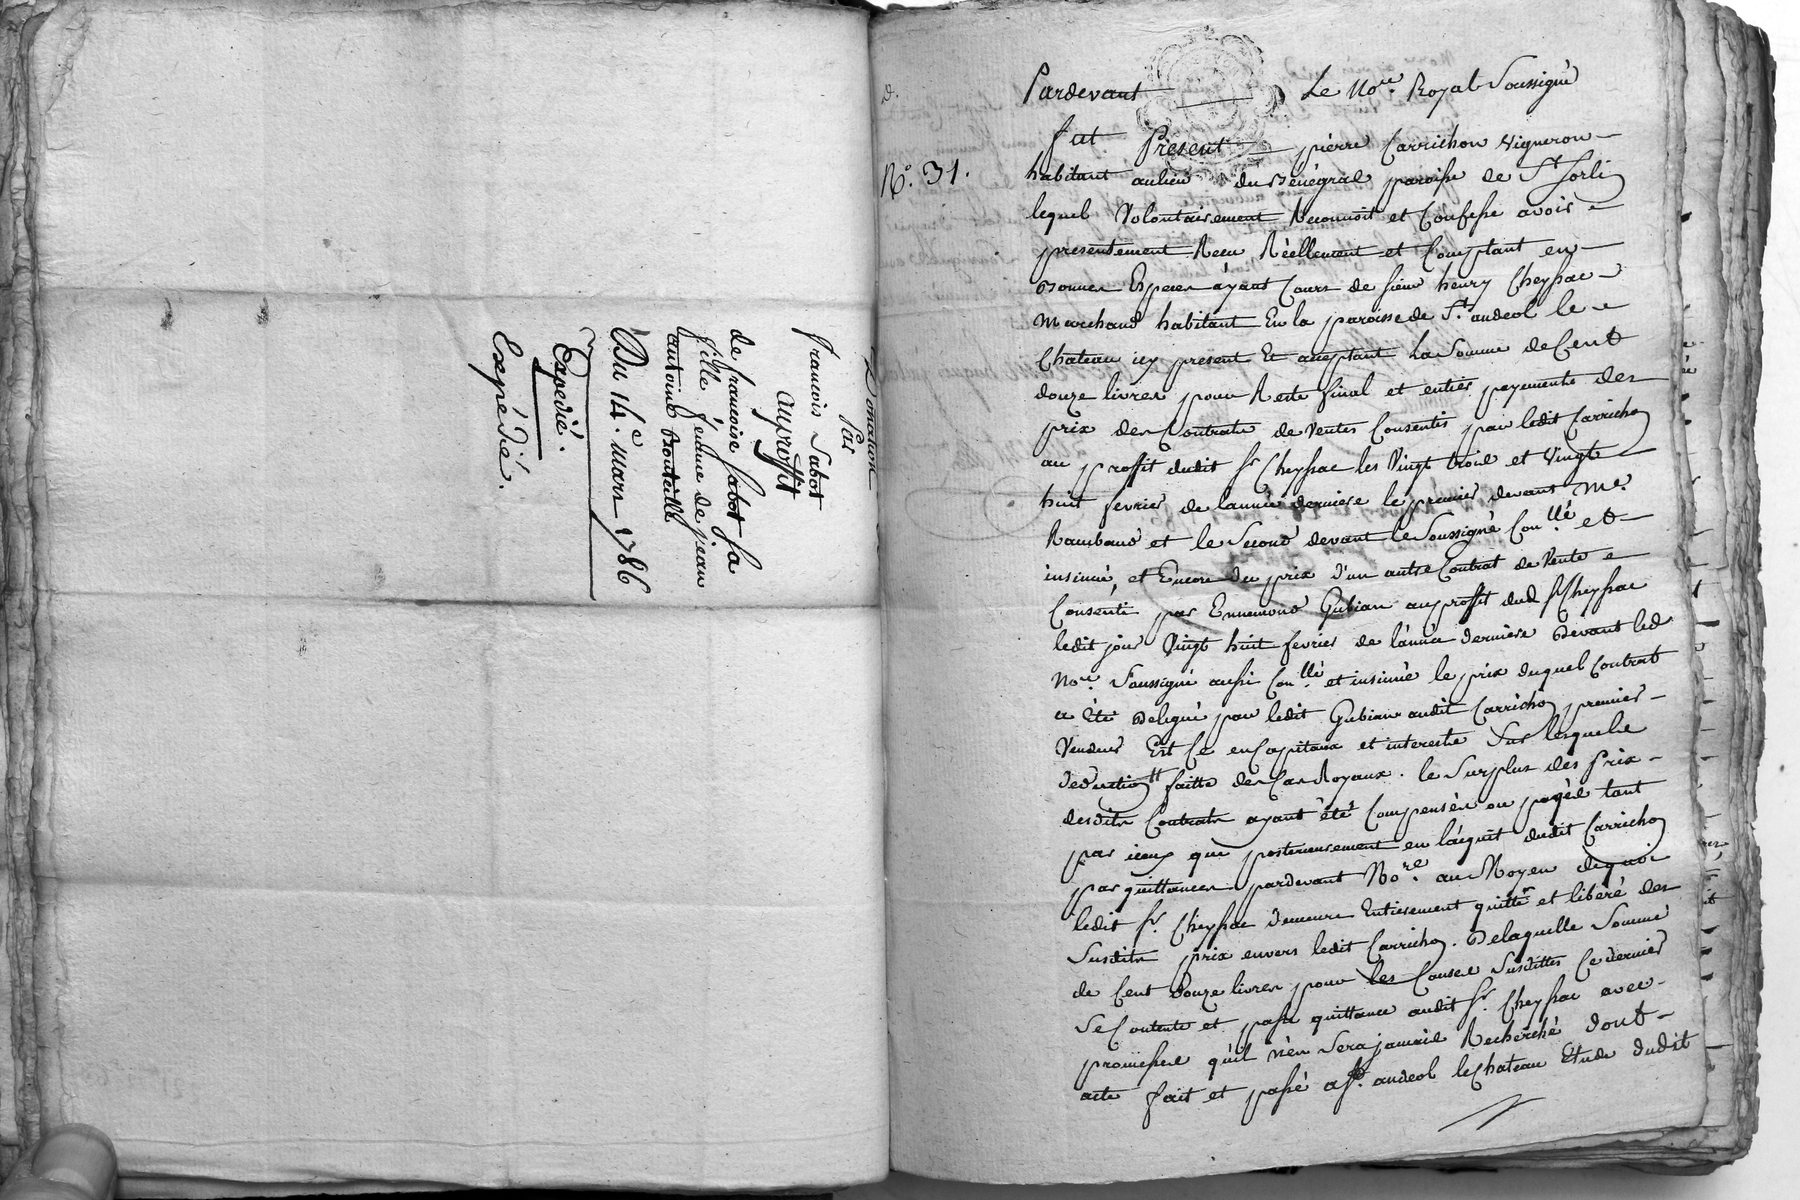 Donation
Par
francois Sabot
auproffit
de francoise sabot sa
fille femme de jean
antoine
Du 14e. mars 1786
Expedié.
Expédié.
N°. 31.
Pardevant Le Nore. Royal Soussigné
fut Present pierre Carrichon vigneron
habitant au lieu du paroisse de St Sorlin
lequel volontairement Reconnoit et Confesse avoir
presentement Receu Réellement et Comptant en
bonnes Especes ayant Cours de sieur henry Cheyssac
Marchand habitant En la paroisse de St. andeol le
Chateau icy present Et aceptant La Somme de Cent
douze livres pour Reste final et entier payements des
prix des Contrats de ventes Consentis par ledit Carrichon
au proffit dudit sr Cheyssac les Vingt trois et Vingt
huit fevrier de l'année derniere le premier devant Me.
Rambaud et le Second devant le Soussigné Conllé. et
insinué, et Encore du prix d'un autre Contrat de Vente
Consenti par Ennemond Gubian au proffit dud sr Cheyssac
ledit jour Vingt huit fevrier de l'année derniere Devant led
Nore. Soussigné aussi Conllé. et insinué le prix duquel Contrat
a été Delegué par ledit Gubian audit Carrichon premier
Vendeur Est Ce en Capitaux et interests Sur lesquels
deduction faitte des Cas Royaux. le Surplus des Prix
desdits Contrats ayant été Compensés ou payés tant
par iceux que posterieurement en l'acquit dudit Carrichon
par quittances pardevant Nore. au Moyen de quoi
ledit sr. Cheyssac demeure Entierement quitte et libéré des
Susdits prix envers ledit Carrichon. De laquelle Somme
de Cent Douze livres pour les Causes Susdittes Ce dernier
Se Contente et passe quittance audit sr. Cheyssac avec
promesse qu'il n'en Sera jamais Recherché dont
acte fait et passé a st. andeol le Chateau Etude dudit